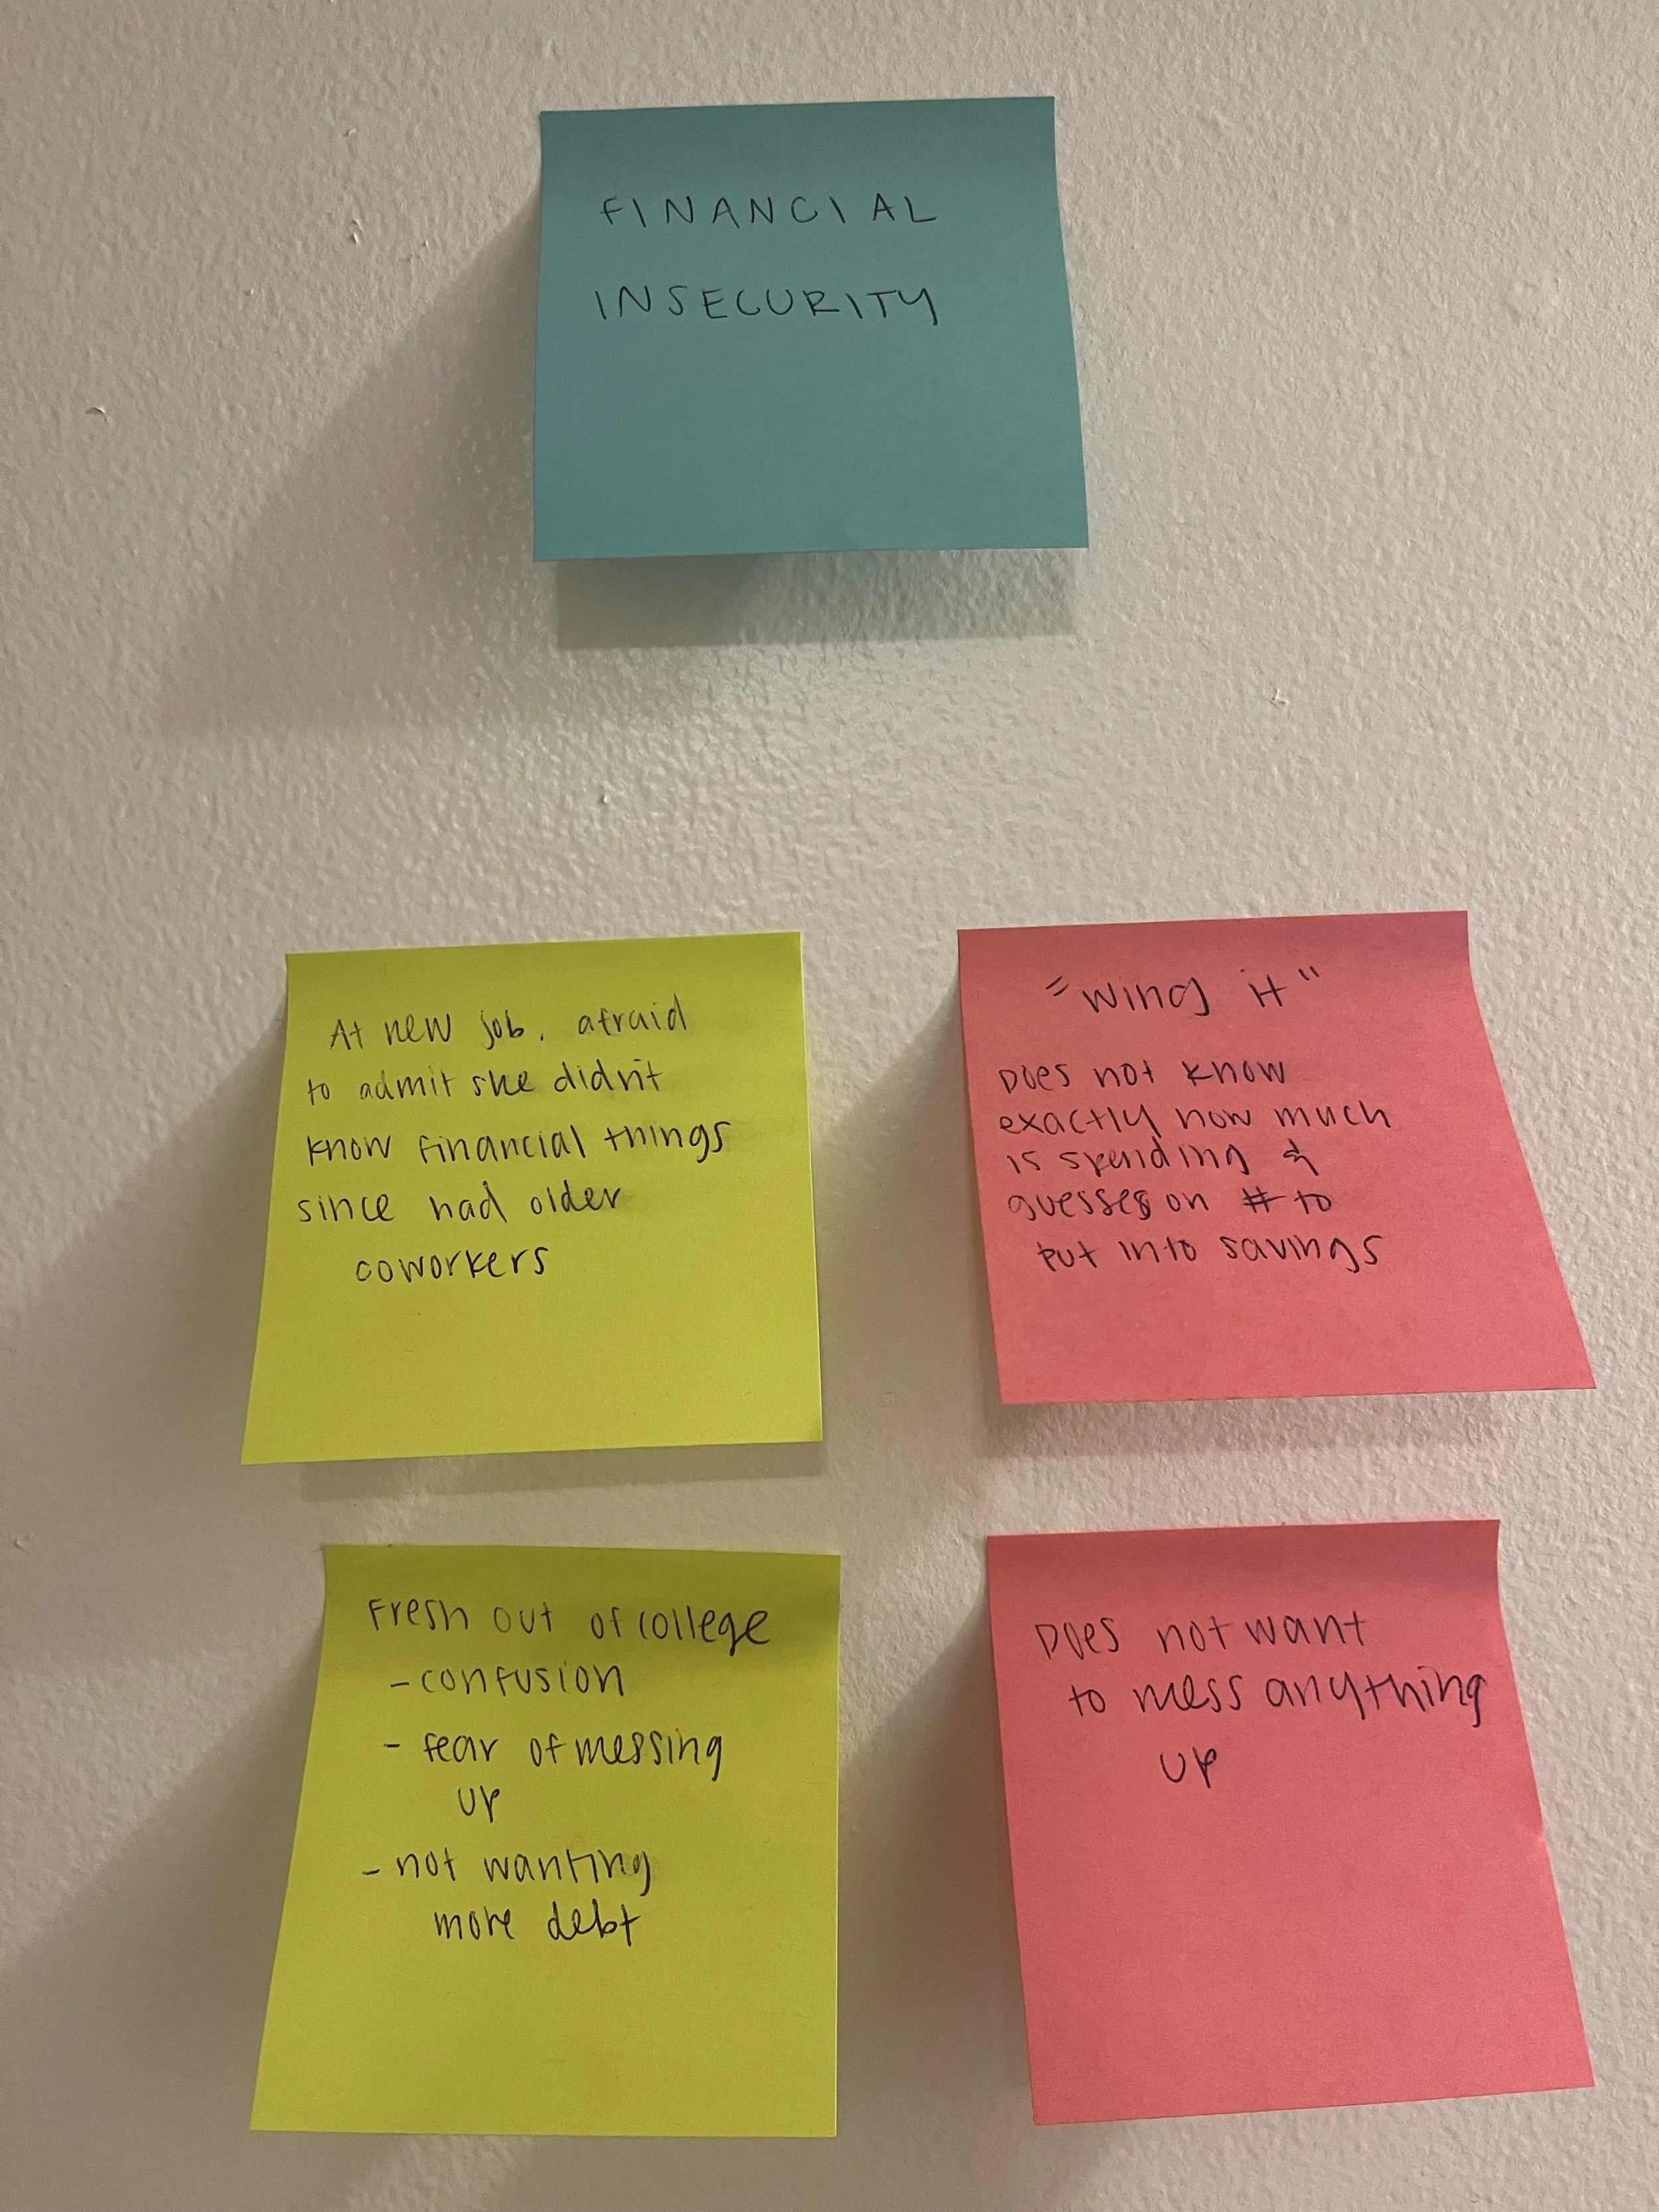 FINANCIAL
INSECURITY
At new job, afraid
to admit she didn't
know financial things
since had older
coworkers
"wing it"
Does not know
exactly how much
is spending &
guesses on # to
put into savings
Fresh out of college
- confusion
- fear of messing
up
- not wanting
more debt
Does not want
to mess anything
up